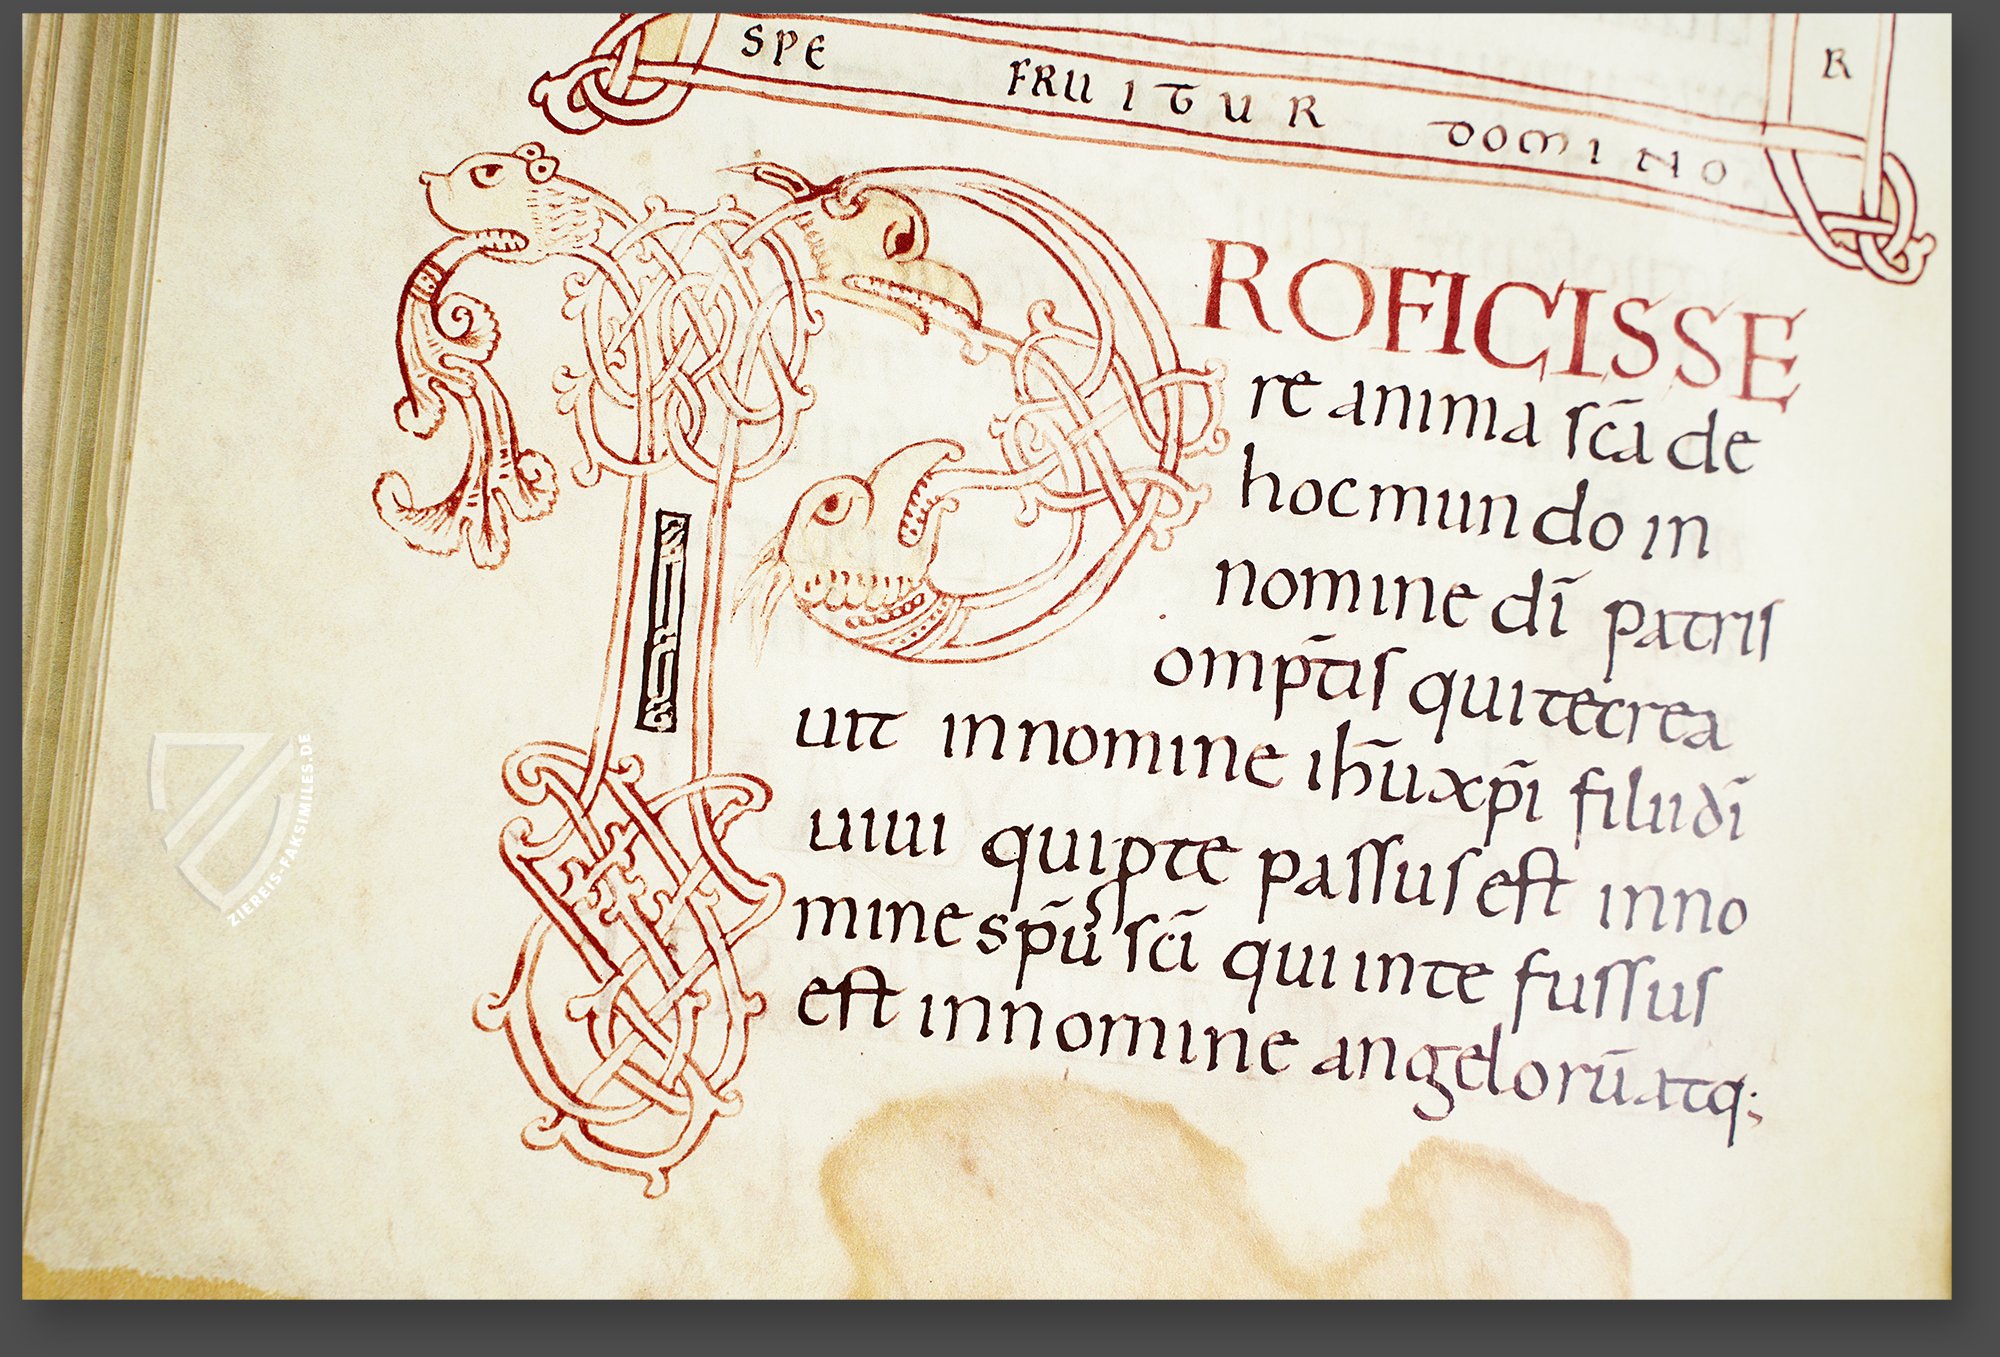 SPE FRUITUR DOMINO
R
PROFICISSE
re anima scā de
hoc mundo in
nomine dī patris
omp̄tis qui te crea
uit in nomine ihū xp̄i filii dī
uiui qui p te passus est in no
mine sp̄u sc̄i qui in te fussus
est in nomine angelorū atq;
ZIEREIS-FAKSIMILES.DE